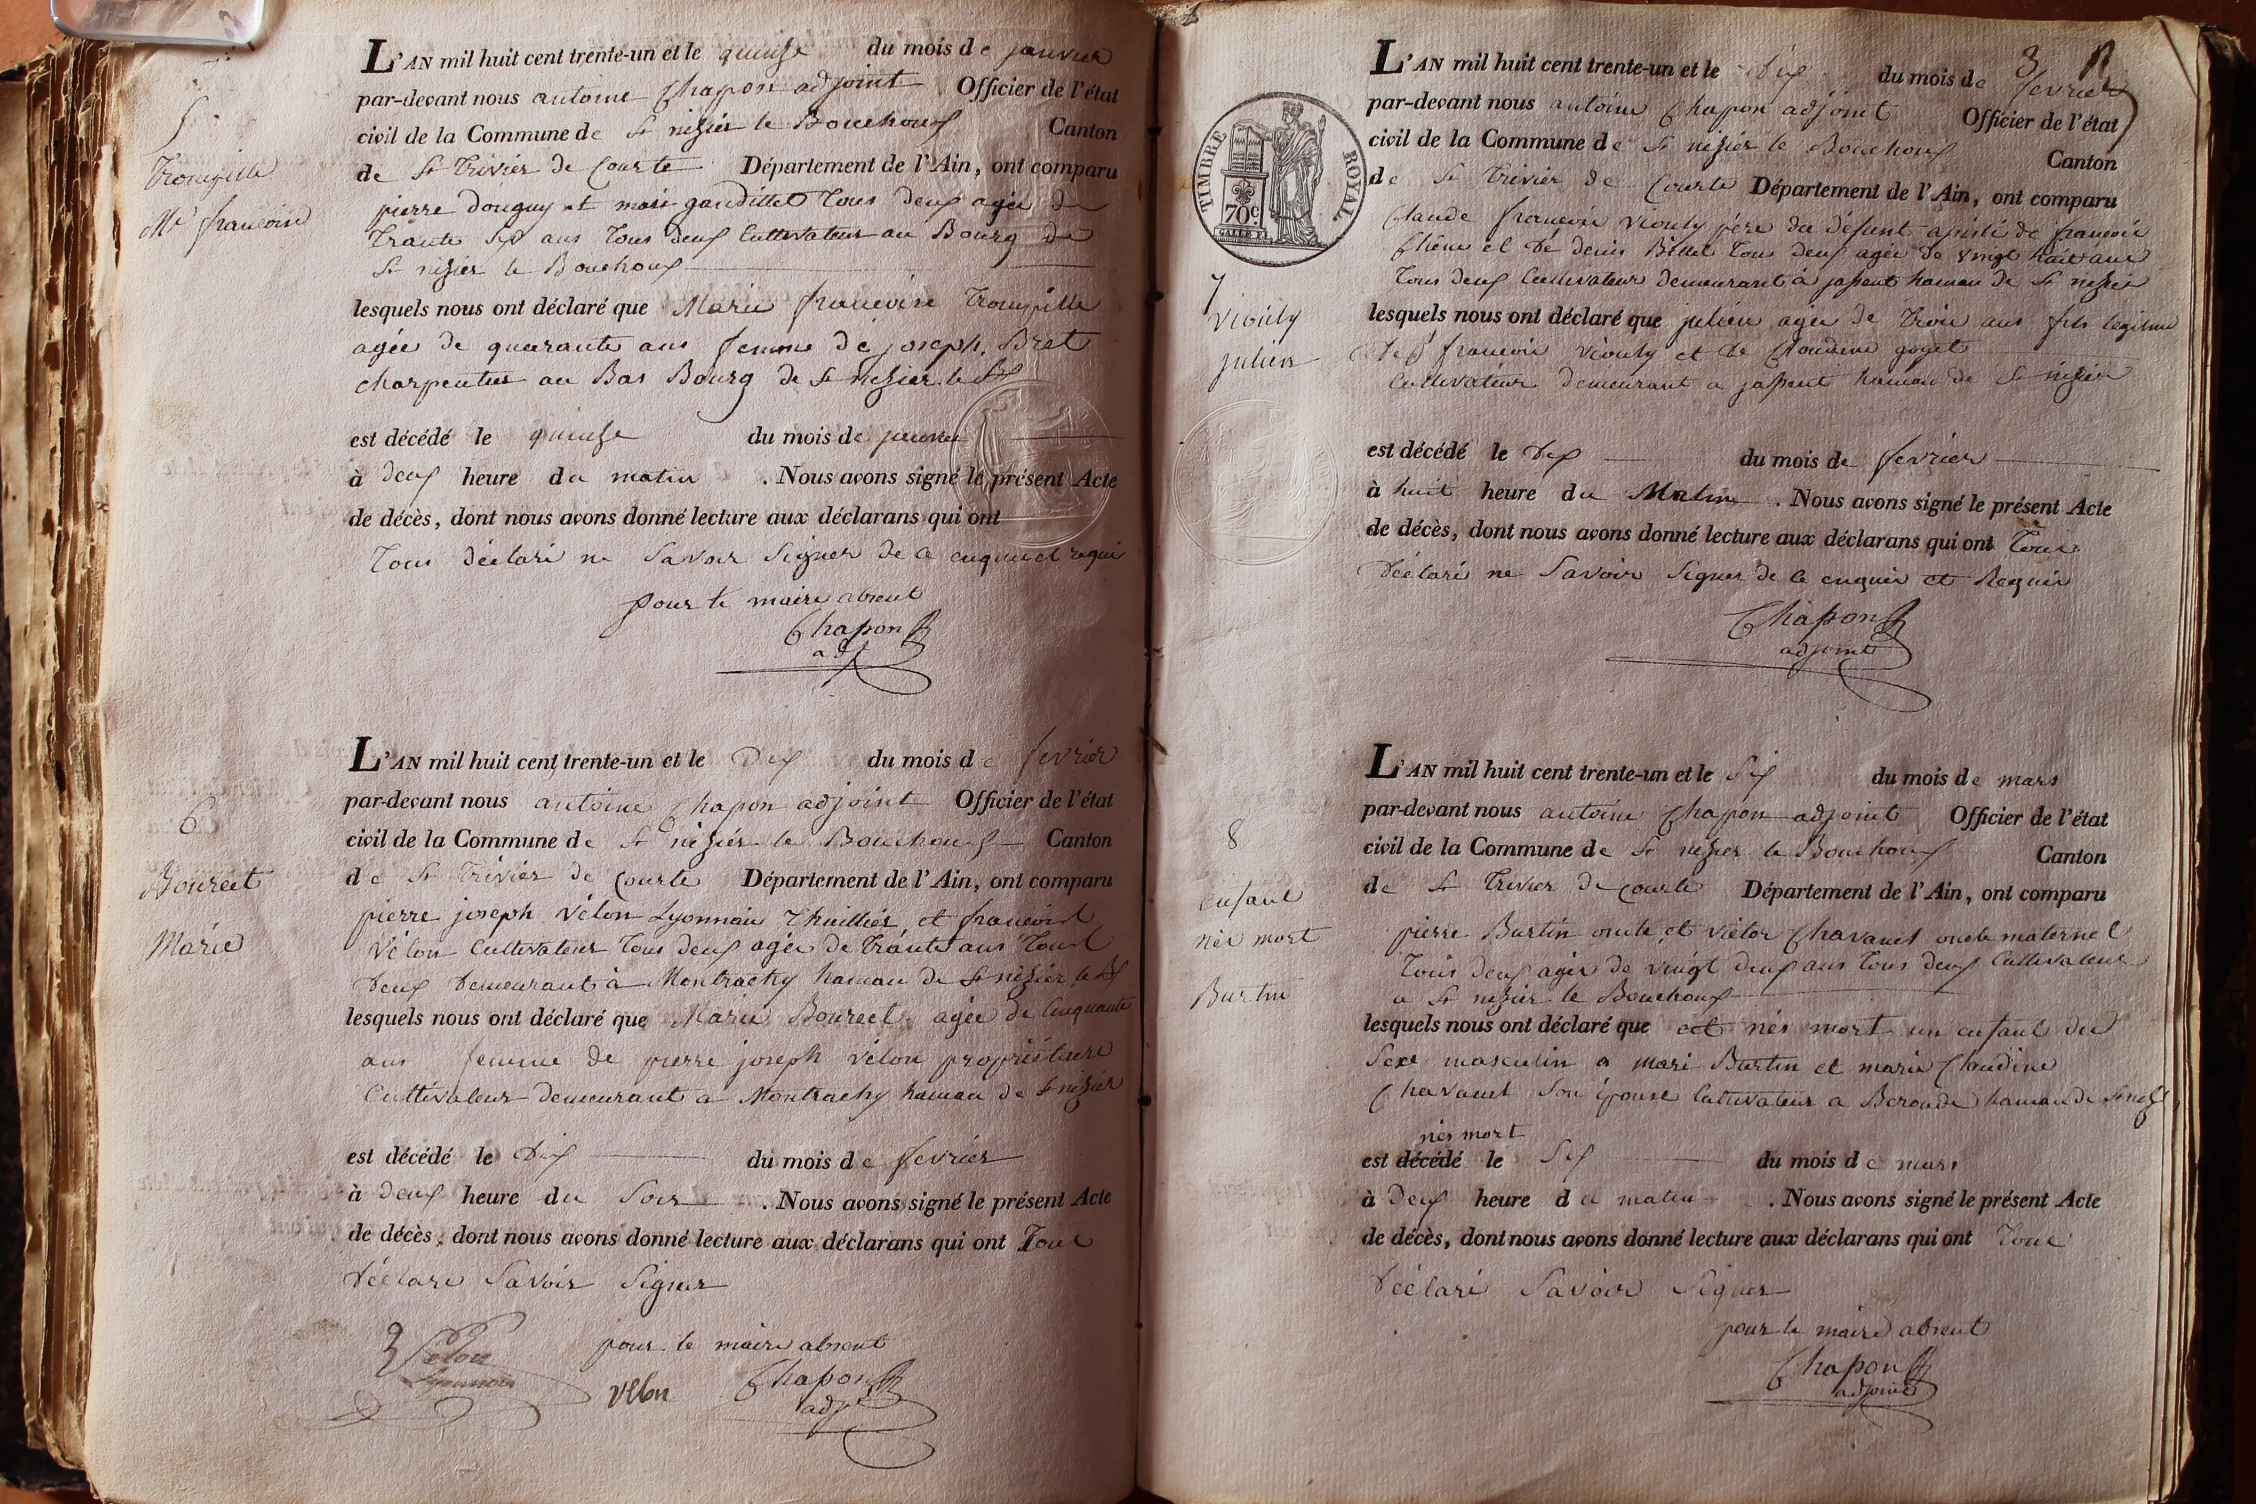 L'AN mil huit cent trente-un et le quinze du mois de janvier
par-devant nous antoine Chapon adjoint Officier de l'état
civil de la Commune de St nizier le Bouchoux Canton
de St Trivier de Courte Département de l'Ain, ont comparu
pierre Douguy et marie gaudillet Tous deux agée de
Trante Six ans Tous deux Cultivateur au Bourg de
St nizier le Bouchoux
lesquels nous ont déclaré que Marie francoise Trompille
agée de quarante ans femme de joseph Bret
charpentier au Bas Bourg de St nizier le Bx
est décédé le quinze du mois de janvier
à deux heure du matin . Nous avons signé le présent Acte
de décès, dont nous avons donné lecture aux déclarans qui ont
Tous déclaré ne Savoir Signer de ce enquis et requis
pour le maire absent
Chapon
adjt
5
Trompille
Mie francoise
L'AN mil huit cent trente-un et le Dix du mois de fevrier
par-devant nous antoine Chapon adjoint Officier de l'état
civil de la Commune de St nizier le Bouchoux Canton
de St Trivier de Courte Département de l'Ain, ont comparu
pierre joseph vélon Lyonnais Thuillier et francois
Vélon Cultivateur Tous deux agée de Trante ans Tous
Deux Demeurant à Montrachy hamau de St nizier le Bx
lesquels nous ont déclaré que Marie Bourcet agée de Cinquante
ans femme de pierre joseph vélon propriétaire
Cultivateur demeurant a Montrachy hamau de St nizier
est décédé le Dix du mois de fevrier
à Deux heure du Soir . Nous avons signé le présent Acte
de décès, dont nous avons donné lecture aux déclarans qui ont Tous
Déclaré Savoir Signer
pour le maire absent
Velon
Lyonnois
velon
Chapon
adjt
6
Bourcet
Marie
3
L'AN mil huit cent trente-un et le Dix du mois de fevrier
par-devant nous antoine Chapon adjoint Officier de l'état
civil de la Commune de St nizier le Bouchoux Canton
de St Trivier de Courte Département de l'Ain, ont comparu
Claude francois Viouly père du défunt assisté de francois
Chêne et de denis Billet Tous deux agée de vingt huit ans
Tous deux Cultivateur demeurant à jassent hamau de St nizier
lesquels nous ont déclaré que julien agée de Trois ans fils légitime
de francois viouly et de Claudine goyet
Cultivateur demeurant a jassent hamau de St nizier
est décédé le Dix du mois de fevrier
à huit heure du Matin . Nous avons signé le présent Acte
de décès, dont nous avons donné lecture aux déclarans qui ont Tous
Déclaré ne Savoir Signer de ce enquis et Requis
Chapon
adjoint
TIMBRE ROYAL
70c.
7
viouly
julien
L'AN mil huit cent trente-un et le Six du mois de mars
par-devant nous antoine Chapon adjoint Officier de l'état
civil de la Commune de St nizier le Bouchoux Canton
de St Trivier de Courte Département de l'Ain, ont comparu
pierre Burtin oncle et victor Chavanet oncle maternel
Tous deux agée de vingt deux ans Tous deux Cultivateur
a St nizier le Bouchoux
lesquels nous ont déclaré que est nés mort un enfant du
Sexe masculin a mari Burtin et marie Claudine
Chavanet Son épouse Cultivateur a Beroude hamau de St niz
nés mort
est décédé le Six du mois de mars
à Deux heure du matin . Nous avons signé le présent Acte
de décès, dont nous avons donné lecture aux déclarans qui ont Tous
Déclaré Savoir Signer
pour le maire absent
Chapon
adjoint
8
enfant
nés mort
Burtin